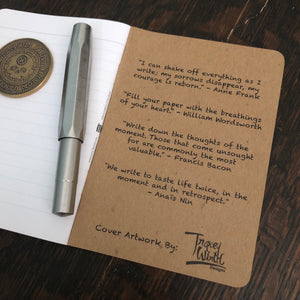 "I can shake off everything as I
write; my sorrows disappear, my
courage is reborn." - Anne Frank
"Fill your paper with the breathings
of your heart." - William Wordsworth
"Write down the thoughts of the
moment. Those that come unsought
for are commonly the most
valuable." - Francis Bacon
"We write to taste life twice, in the
moment and in retrospect."
- Anaïs Nin
Cover Artwork By:
Tracey
Wirth
Designs